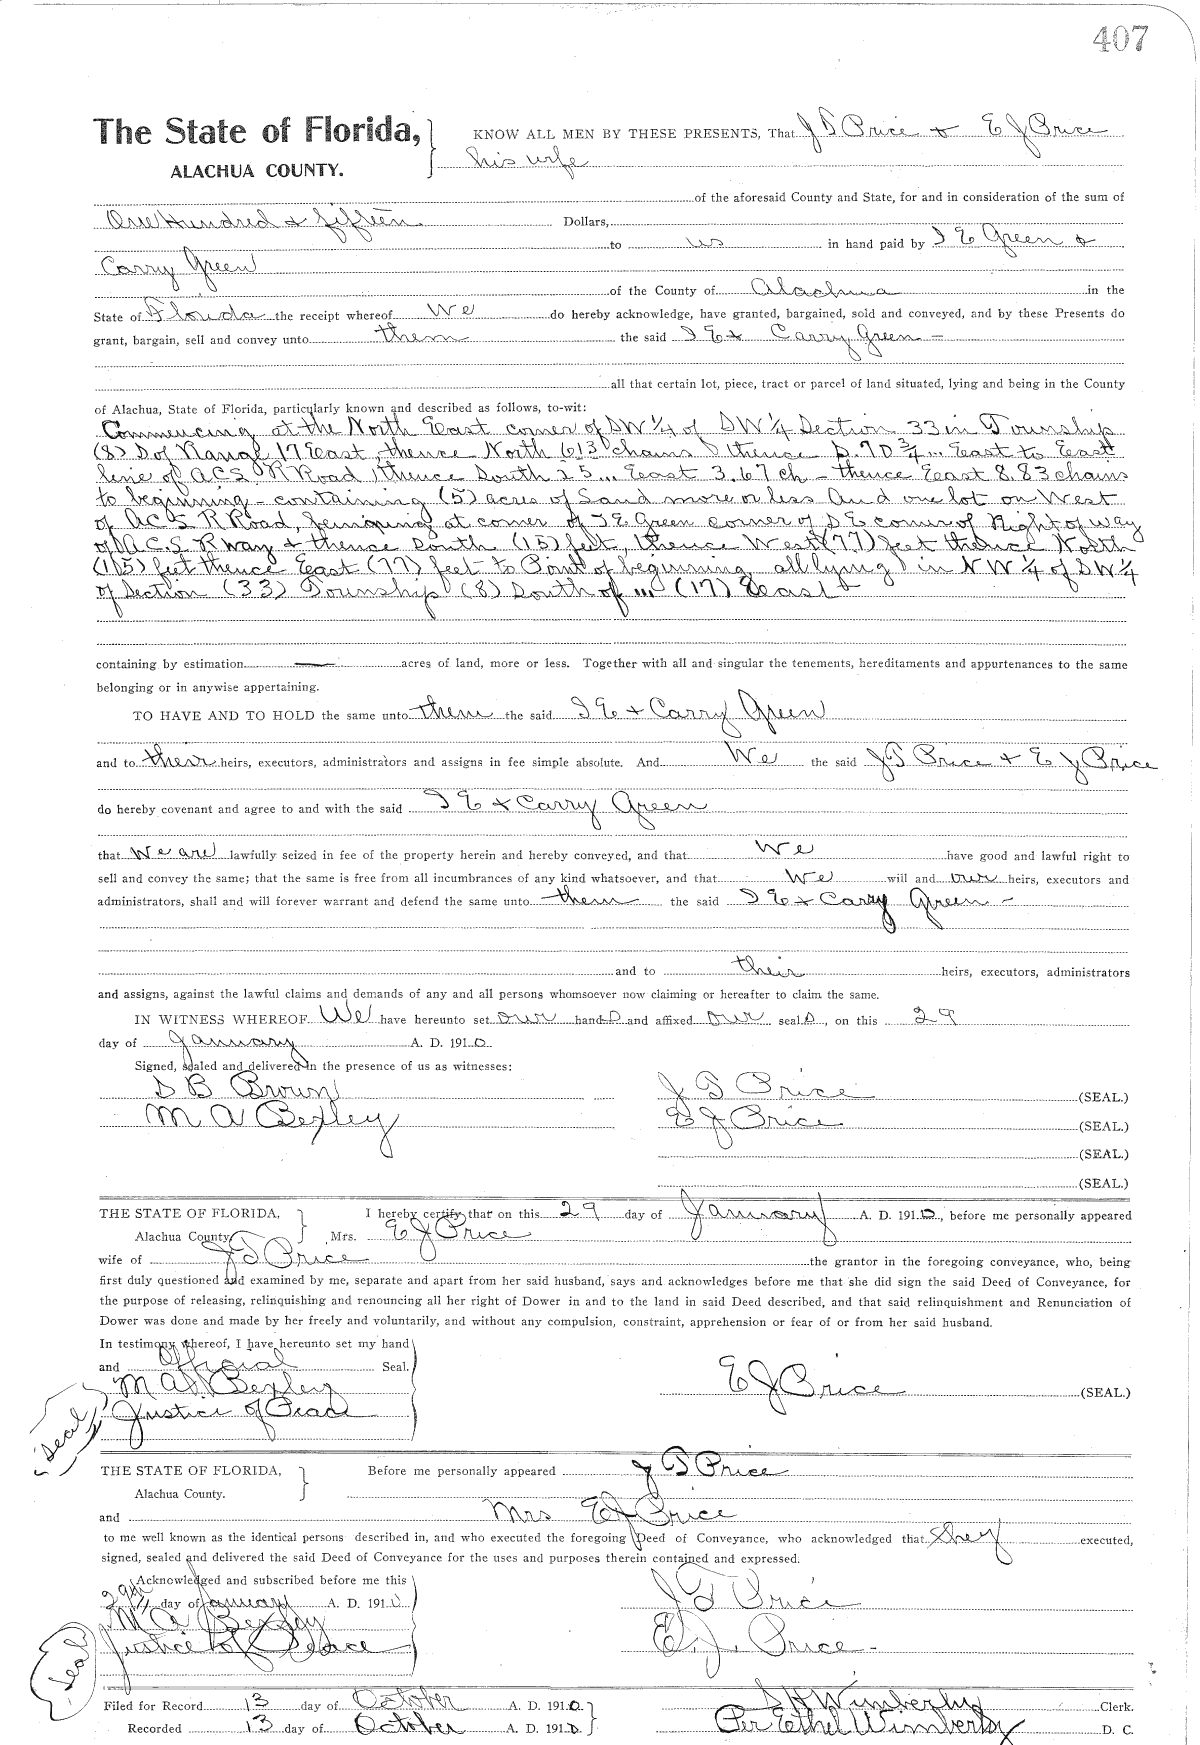 407
The State of Florida, KNOW ALL MEN BY THESE PRESENTS, That J T Price & E J Price
ALACHUA COUNTY. his wife
of the aforesaid County and State, for and in consideration of the sum of
One Hundred & fifteen Dollars,
to us in hand paid by I E Green &
Carry Green
of the County of Alachua in the
State of Florida the receipt whereof We do hereby acknowledge, have granted, bargained, sold and conveyed, and by these Presents do
grant, bargain, sell and convey unto them the said I E & Carry Green -
all that certain lot, piece, tract or parcel of land situated, lying and being in the County
of Alachua, State of Florida, particularly known and described as follows, to-wit:
Commencing at the North East corner of SW 1/4 of SW 1/4 Section 33 in Township
(8) S of Range 17 East, thence North 613 chains thence S. 70 3/4 ... East to East
line of A.C.S. R Road, thence South 25 ... East 3.67 ch - thence East 8.83 chains
to beginning - containing (5) acres of Land more or less And one lot on West
of A.C.S R Road, beginning at corner of I E Green corner of S E corner of Right of way
of A.C.S R way & thence South (15) feet, thence West (77) feet thence North
(115) feet thence East (77) feet to Point of beginning all lying in N W 1/4 of SW 1/4
of Section (33) Township (8) South of ... (17) East
containing by estimation — acres of land, more or less. Together with all and singular the tenements, hereditaments and appurtenances to the same
belonging or in anywise appertaining.
TO HAVE AND TO HOLD the same unto them the said I E & Carry Green
and to their heirs, executors, administrators and assigns in fee simple absolute. And We the said J T Price & E J Price
do hereby covenant and agree to and with the said I E & Carry Green
that We are lawfully seized in fee of the property herein and hereby conveyed, and that We have good and lawful right to
sell and convey the same; that the same is free from all incumbrances of any kind whatsoever, and that We will and our heirs, executors and
administrators, shall and will forever warrant and defend the same unto them the said I E & Carry Green -
and to their heirs, executors, administrators
and assigns, against the lawful claims and demands of any and all persons whomsoever now claiming or hereafter to claim the same.
IN WITNESS WHEREOF We have hereunto set our hands and affixed our seals, on this 29
day of January A. D. 1910.
Signed, sealed and delivered in the presence of us as witnesses:
S B Brown J T Price (SEAL.)
M A Bexley E J Price (SEAL.)
(SEAL.)
(SEAL.)
THE STATE OF FLORIDA, I hereby certify that on this 29 day of January A. D. 1910, before me personally appeared
Alachua County. Mrs. E J Price
wife of J T Price the grantor in the foregoing conveyance, who, being
first duly questioned and examined by me, separate and apart from her said husband, says and acknowledges before me that she did sign the said Deed of Conveyance, for
the purpose of releasing, relinquishing and renouncing all her right of Dower in and to the land in said Deed described, and that said relinquishment and Renunciation of
Dower was done and made by her freely and voluntarily, and without any compulsion, constraint, apprehension or fear of or from her said husband.
In testimony whereof, I have hereunto set my hand
and Official Seal.
M A Bexley E J Price (SEAL.)
Justice of Peace
Seal
THE STATE OF FLORIDA, Before me personally appeared J T Price
Alachua County.
and Mrs E J Price
to me well known as the identical persons described in, and who executed the foregoing Deed of Conveyance, who acknowledged that they executed,
signed, sealed and delivered the said Deed of Conveyance for the uses and purposes therein contained and expressed.
Acknowledged and subscribed before me this
29th day of January A. D. 1910 J T Price
M A Bexley
Justice of Peace E. J. Price -
Seal
Filed for Record 13 day of October A. D. 1910. S H Wimberly Clerk.
Recorded 13 day of October A. D. 1910. Per Ethel Wimberly D. C.